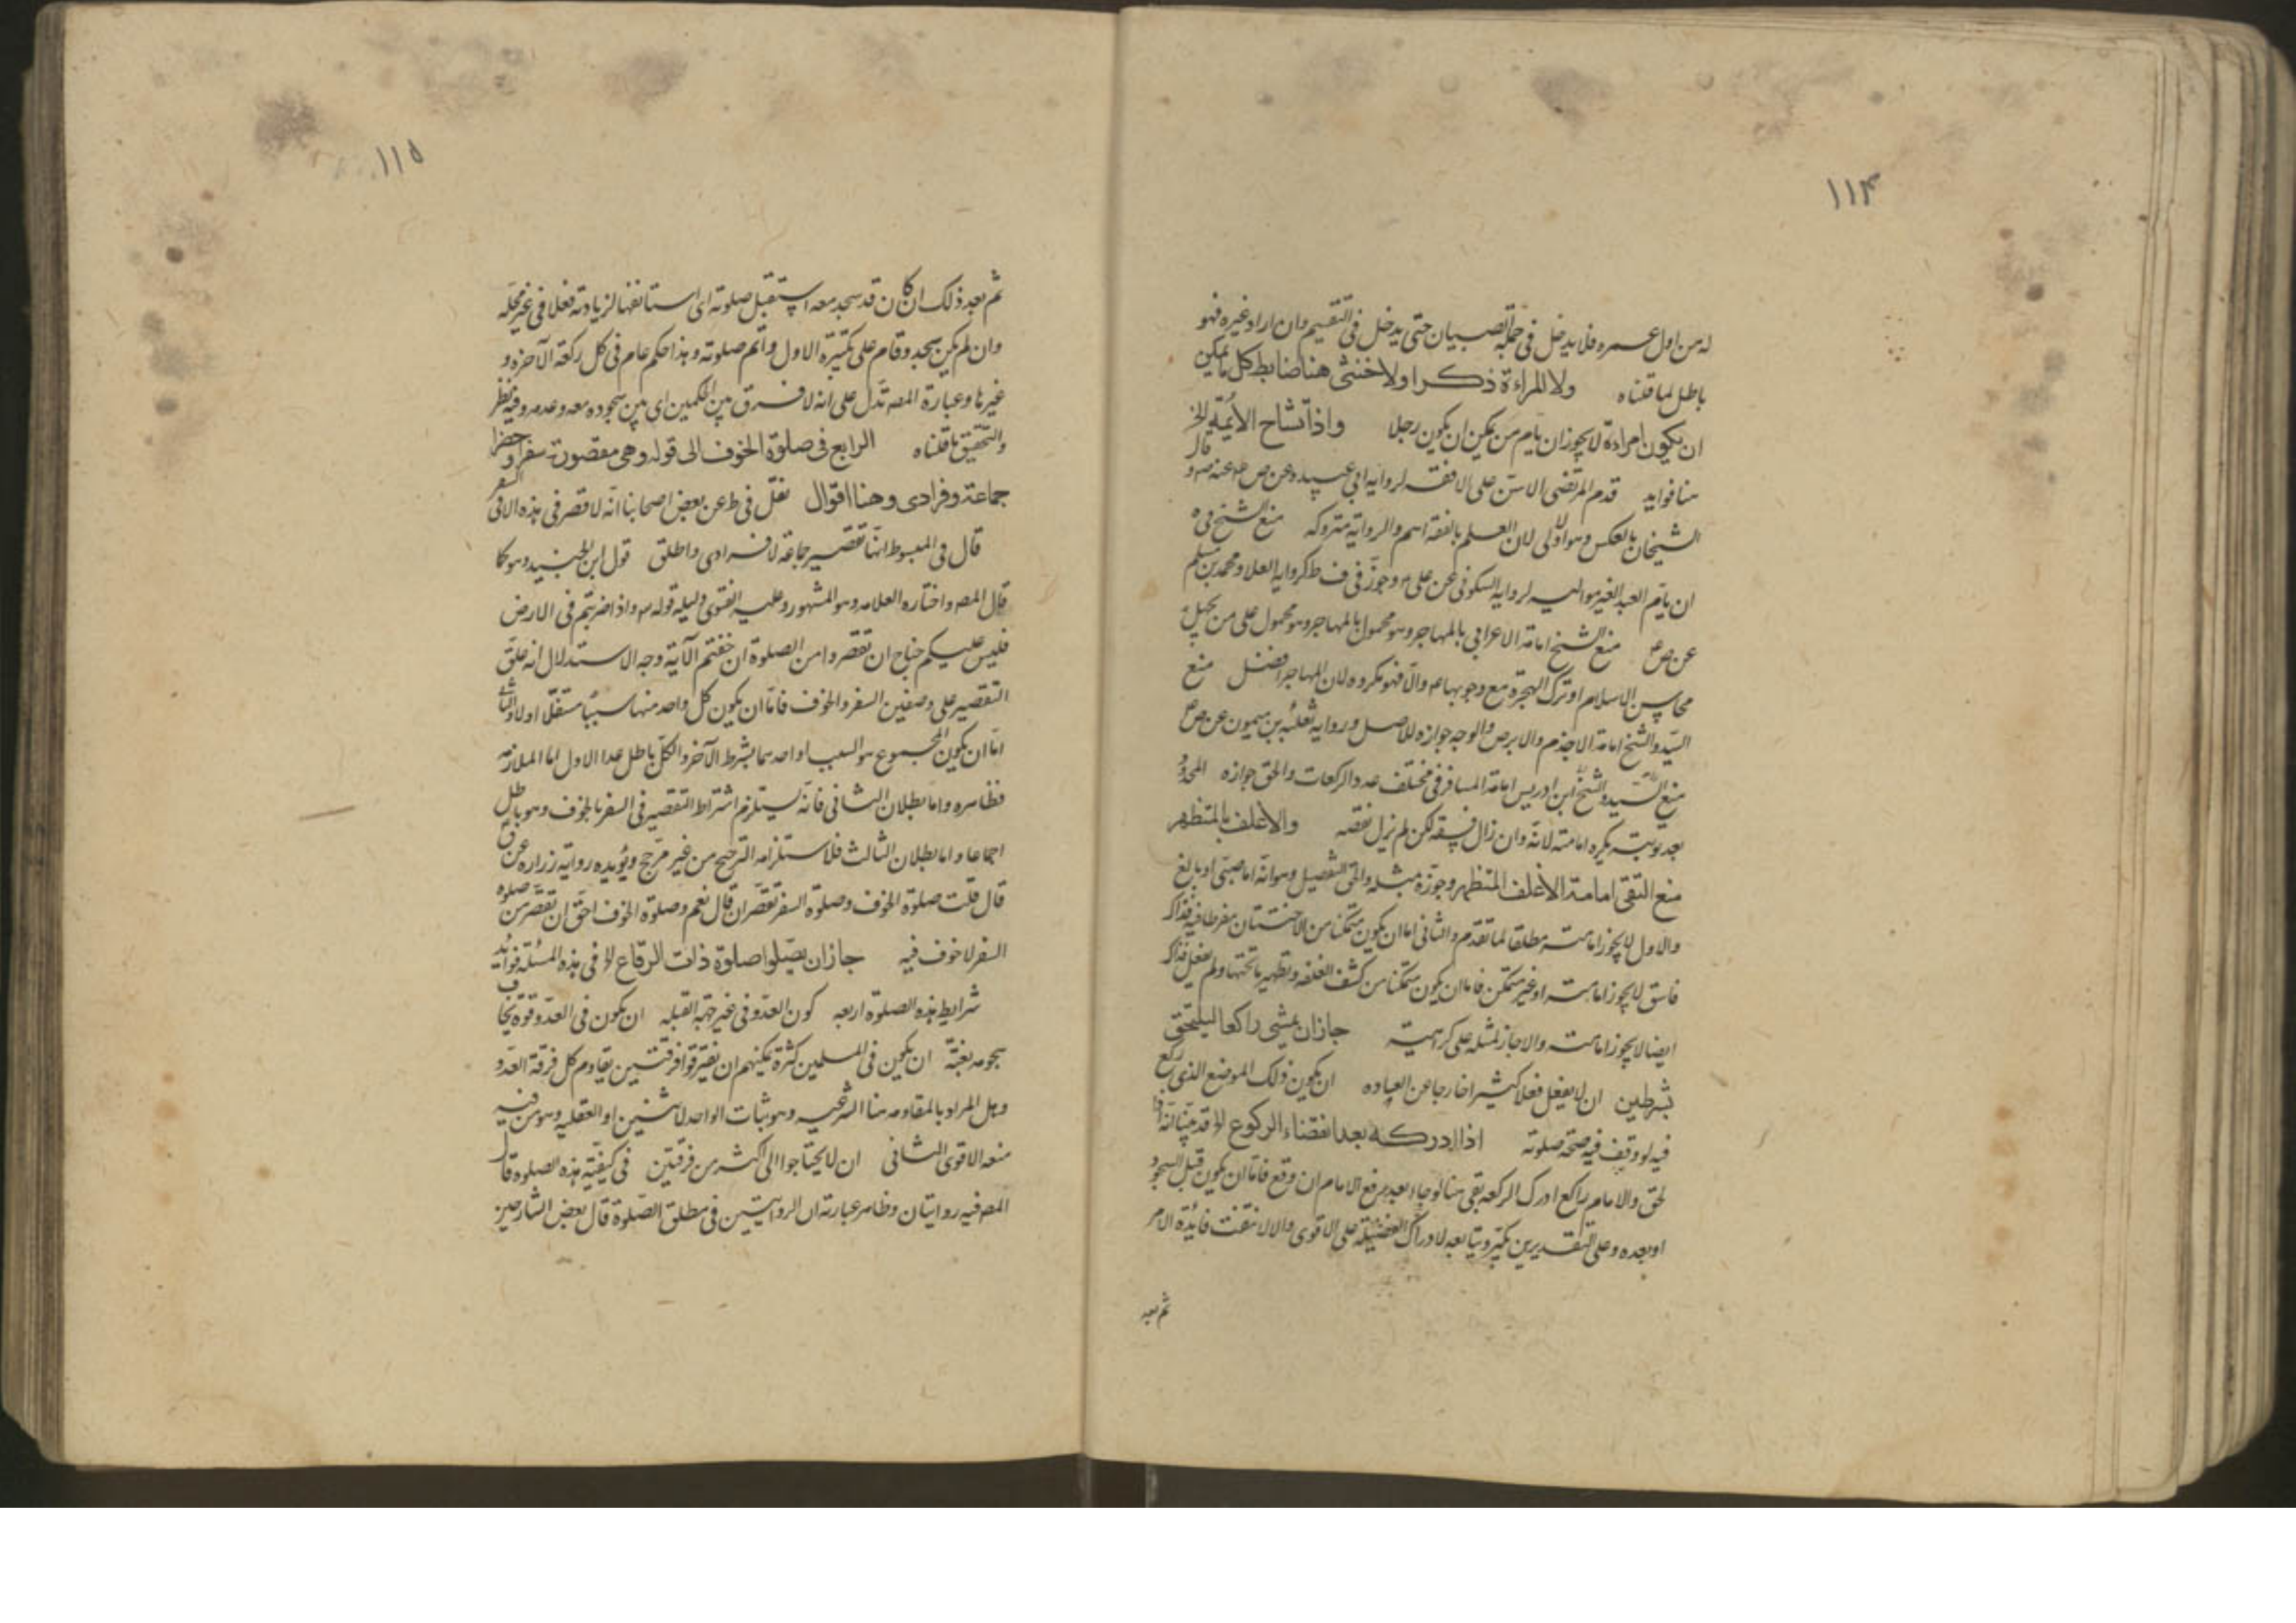 ١١٤
له من اول عمره فلا يدخل فى جملة الصبيان حتى يدخل فى التقسيم وان اراد غيره فهو
باطل لما قلناه ولا المراءة ذكرا ولا خنثى هنا ضابط كل ما يمكن
ان يكون امراءة لا يجوز ان يام من يمكن ان يكون رجلا واذا تشاح الأئمة الخ
هنا فوايد قدم المرتضى الاسن على الافقه لرواية ابى عبيده عن ص ع عنه ص و قال
الشيخان بالعكس وهو اولى لان العلم بالفقه اهم والرواية متروكه منع الشيخ فى ه
ان يام العبد الغير مواليه لرواية السكونى عن على ع وجوز فى ف ط كرواية العلا ومحمد بن مسلم
عن ص ع منع الشيخ امامة الاعرابى بالمهاجر وهو محمول على من يجهل
محاسن الاسلام او ترك الهجرة مع وجوبها ع والا فهو مكروه لان المهاجر افضل منع
السيد والشيخ امامة الاجذم والابرص والوجه جوازه للاصل ورواية ثعلبة بن ميمون عن ص ع
منع السيد والشيخ ابن ادريس امامة المسافر فى مختلف عدد الركعات والحق جوازه المحدود
بعد توبته يكره امامته لانه وان زال فسقه لكن لم يزل نقصه والاغلف بالمتطهر
منع التقى امامة الاغلف المتطهر وجوزه بمثله والحق التفصيل وهو انه اما صبى او بالغ
والاول لا يجوز امامته مطلقا لما تقدم والثانى اما ان يكون متمكنا من الاختتان مفرطا فيه فذاك
فاسق لا يجوز امامته او غير متمكن فاما ان يكون متمكنا من كشف الغلفه وتطهير ما تحتها ولم يفعل فذاك
ايضا لا يجوز امامته والا جاز لمثله على كراهية جاز ان يمشى راكعا ليلتحق
بشرطين ان لا يفعل فعلا كثيرا خارجا عن العباده ان يكون ذلك الموضع الذى ركع
فيه لو وقف فيه صحة صلوته اذا ادركه بعد انقضاء الركوع الخ قد بينا انه اذا
لحق والامام راكع ادرك الركعه بقى هنا لو جاء بعد رفع الامام ان وقع فاما ان يكون قبل السجود
او بعده وعلى التقديرين يكبر ويتابعه لادراك الفضيلة على الاقوى والا لانتفت فائدة الامر
ثم بعد
١١٥
ثم بعد ذلك ان كان قد سجد معه استقبل صلوته اى استانفها لزيادته فعلا فى غير محله
وان لم يكن سجد وقام على تكبيره الاول واتم صلوته وهذا حكم عام فى كل ركعة الآخره و
غيرها وعبارة المص تدل على انه لا فرق بين الحكمين اى بين سجوده معه وعدمه وفيه نظر
والتحقيق ما قلناه الرابع فى صلوة الخوف الى قوله وهى مقصورة سفرا وحضرا
جماعة وفرادى وهنا اقوال نقل فى ط عن بعض اصحابنا انه لا قصر فى هذه الا فى السفر
قال فى المبسوط انها تقصير جماعة لا فرادى واطلق قول ابن الجنيد وهو كما
قال المص واختاره العلامه وهو المشهور وعليه الفتوى دليله قوله تع واذا ضربتم فى الارض
فليس عليكم جناح ان تقصروا من الصلوة ان خفتم الآية وجه الاستدلال انه علق
التقصير على وصفين السفر والخوف فاما ان يكون كل واحد منهما سببا مستقلا او لا والثانى
اما ان يكون المجموع هو السبب او احدهما بشرط الآخر والكل باطل عدا الاول اما الملازمه
فظاهره واما بطلان الثانى فانه يستلزم اشتراط التقصير فى السفر بالخوف وهو باطل
اجماعا واما بطلان الثالث فلاستلزامه الترجيح من غير مرجح ويؤيده رواية زراره عن ق
قال قلت صلوة الخوف وصلوة السفر تقصران قال نعم وصلوة الخوف احق ان تقصر من صلوة
السفر لا خوف فيه جاز ان يصلوا صلوة ذات الرقاع الخ فى هذه المسئلة فوائد
شرايط هذه الصلوة اربعه كون العدو فى غير جهة القبله ان يكون فى العدو قوة يخاف
هجومه بغتة ان يكون فى المسلمين كثرة يمكنهم ان يفترقوا فرقتين يقاوم كل فرقة العدو
وهل المراد بالمقاومه هنا الشرعيه وهو ثبات الواحد لاثنين او العقليه وهو من فيه
منعه الاقوى الثانى ان لا يحتاجوا الى اكثر من فرقتين فى كيفية هذه الصلوة قال
المص فيه روايتان وظاهر عبارته ان الروايتين فى مطلق الصلوة قال بعض الشارحين